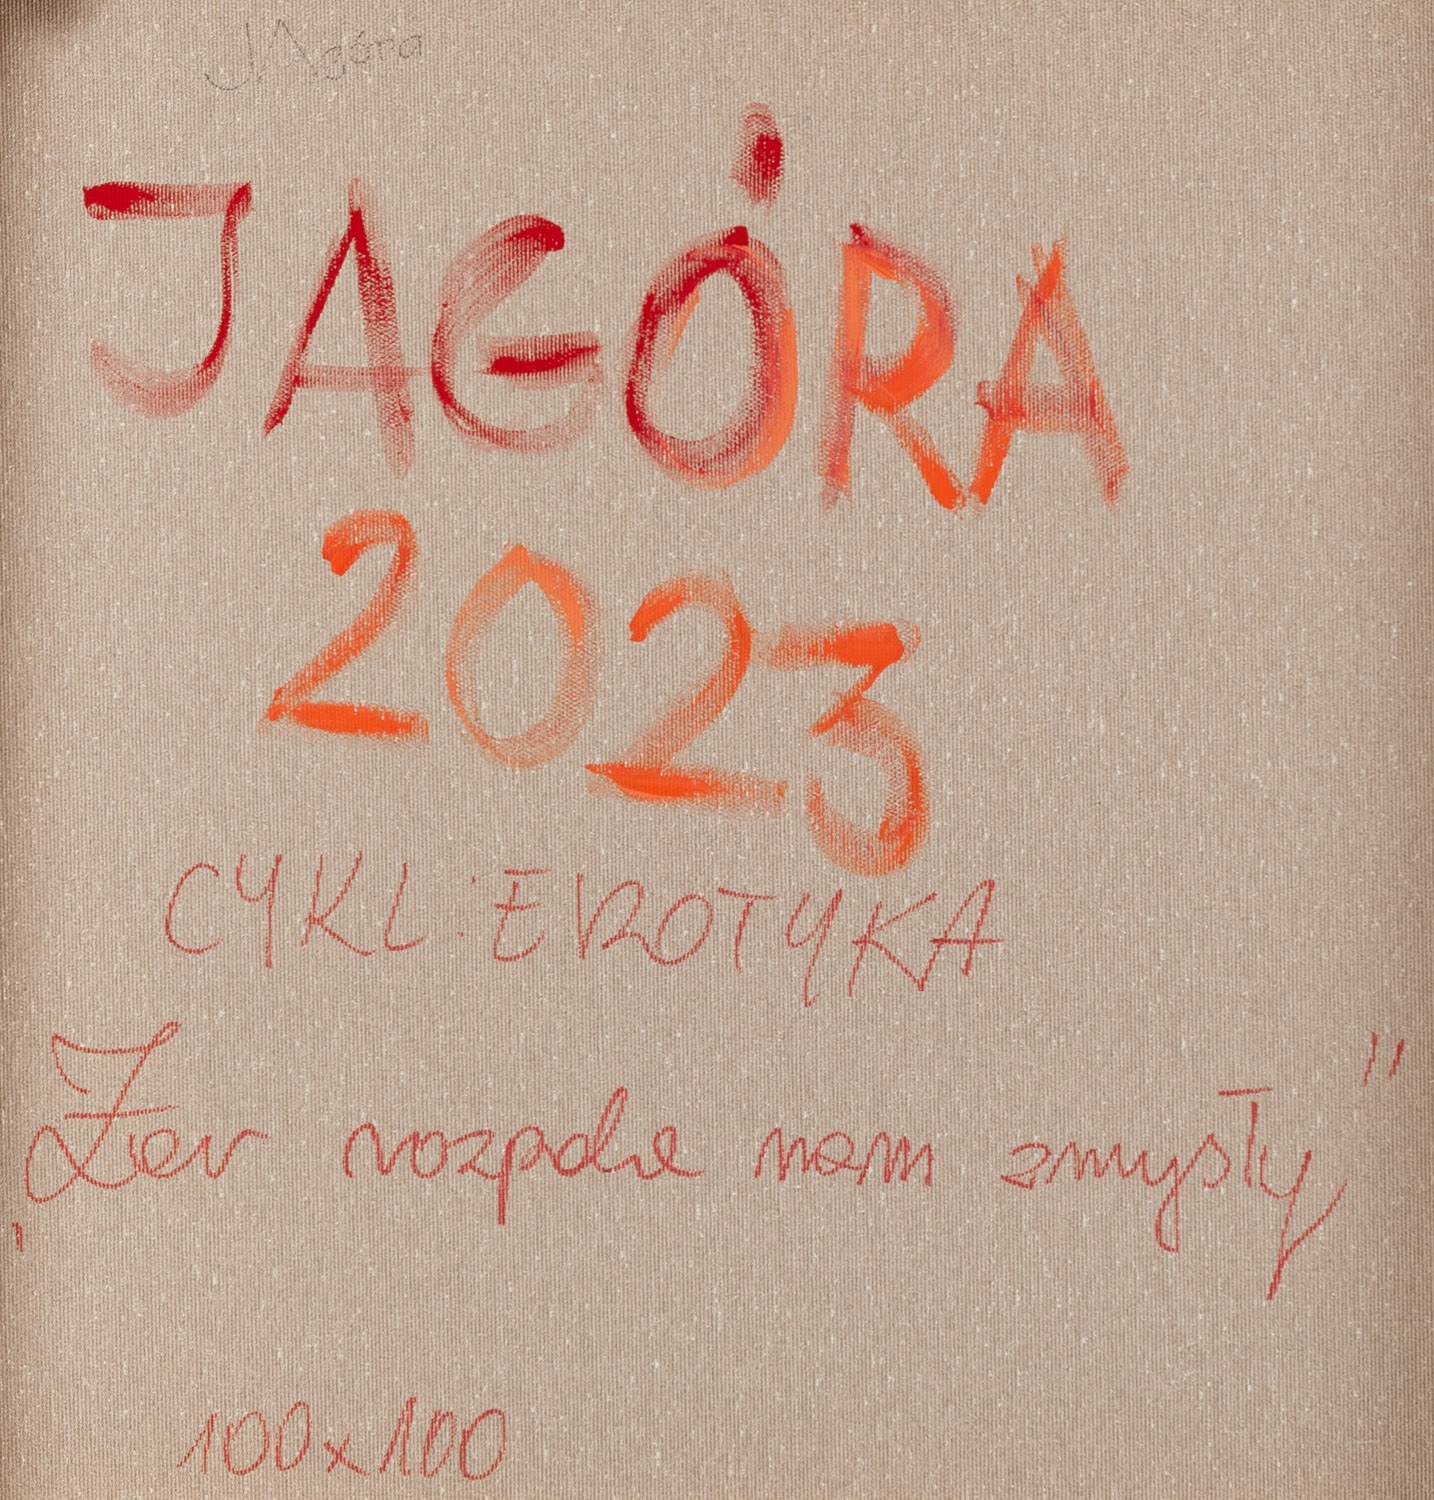 JAgóra
JAGÓRA
2023
CYKL: EROTYKA
„Żar rozpala nam zmysły”
100x100